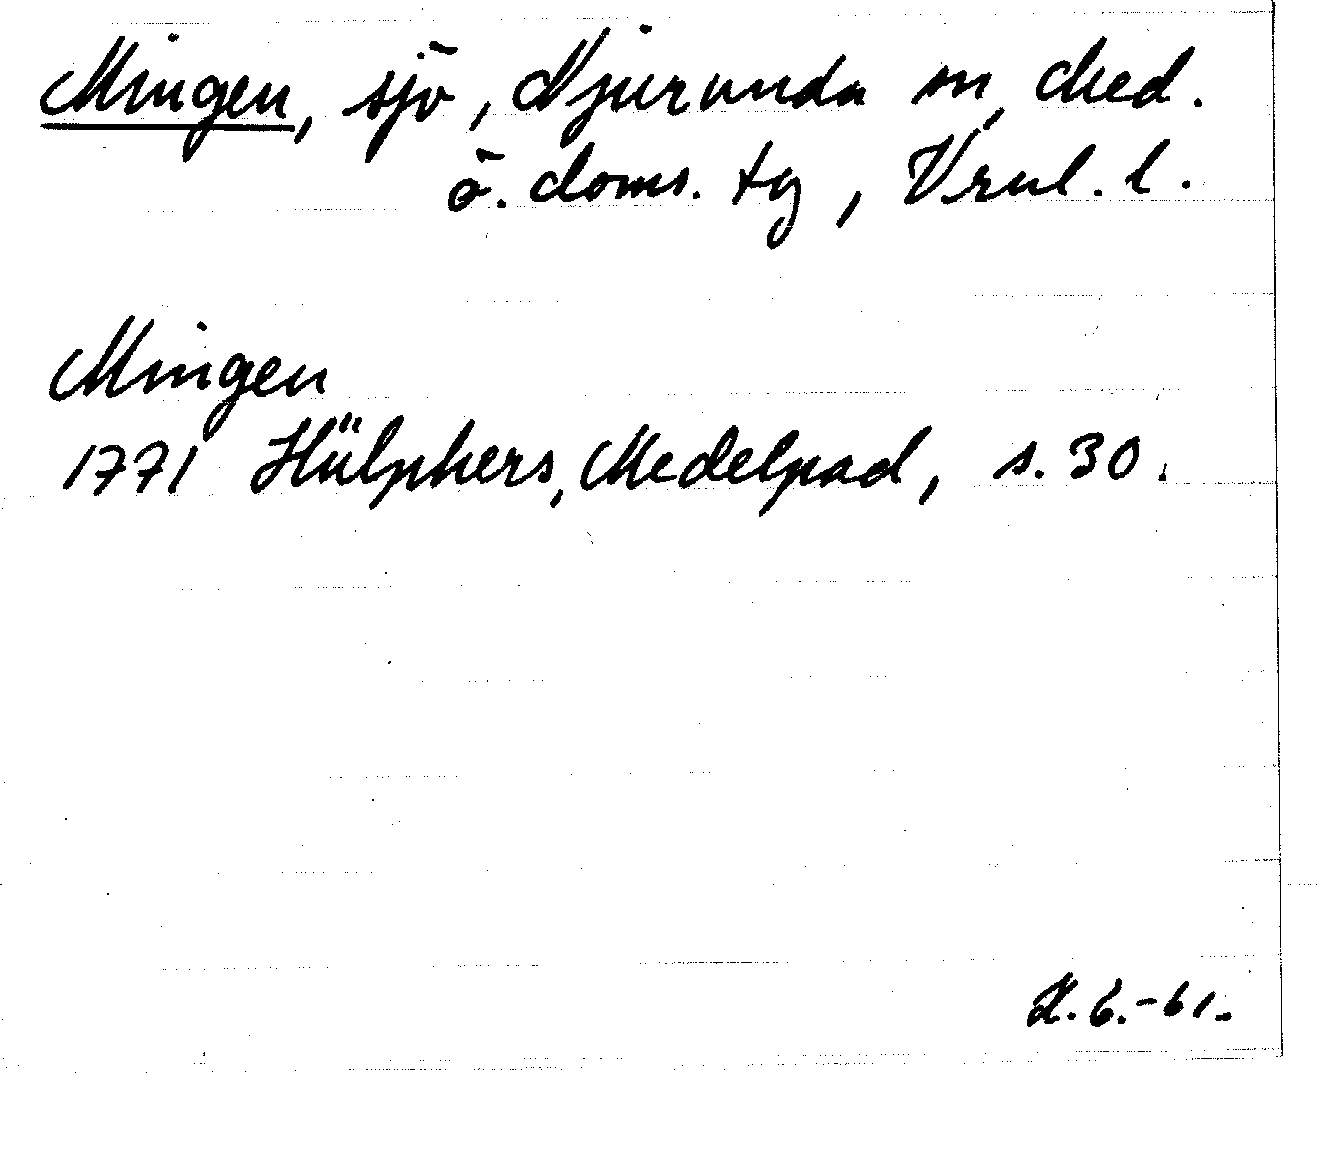 Mingen, sjö, Njurunda sn, Med.
ö. doms. tg, Vrnl. l.
Mingen
1771 Hülphers, Medelpad, s. 30.
K. G. -61.